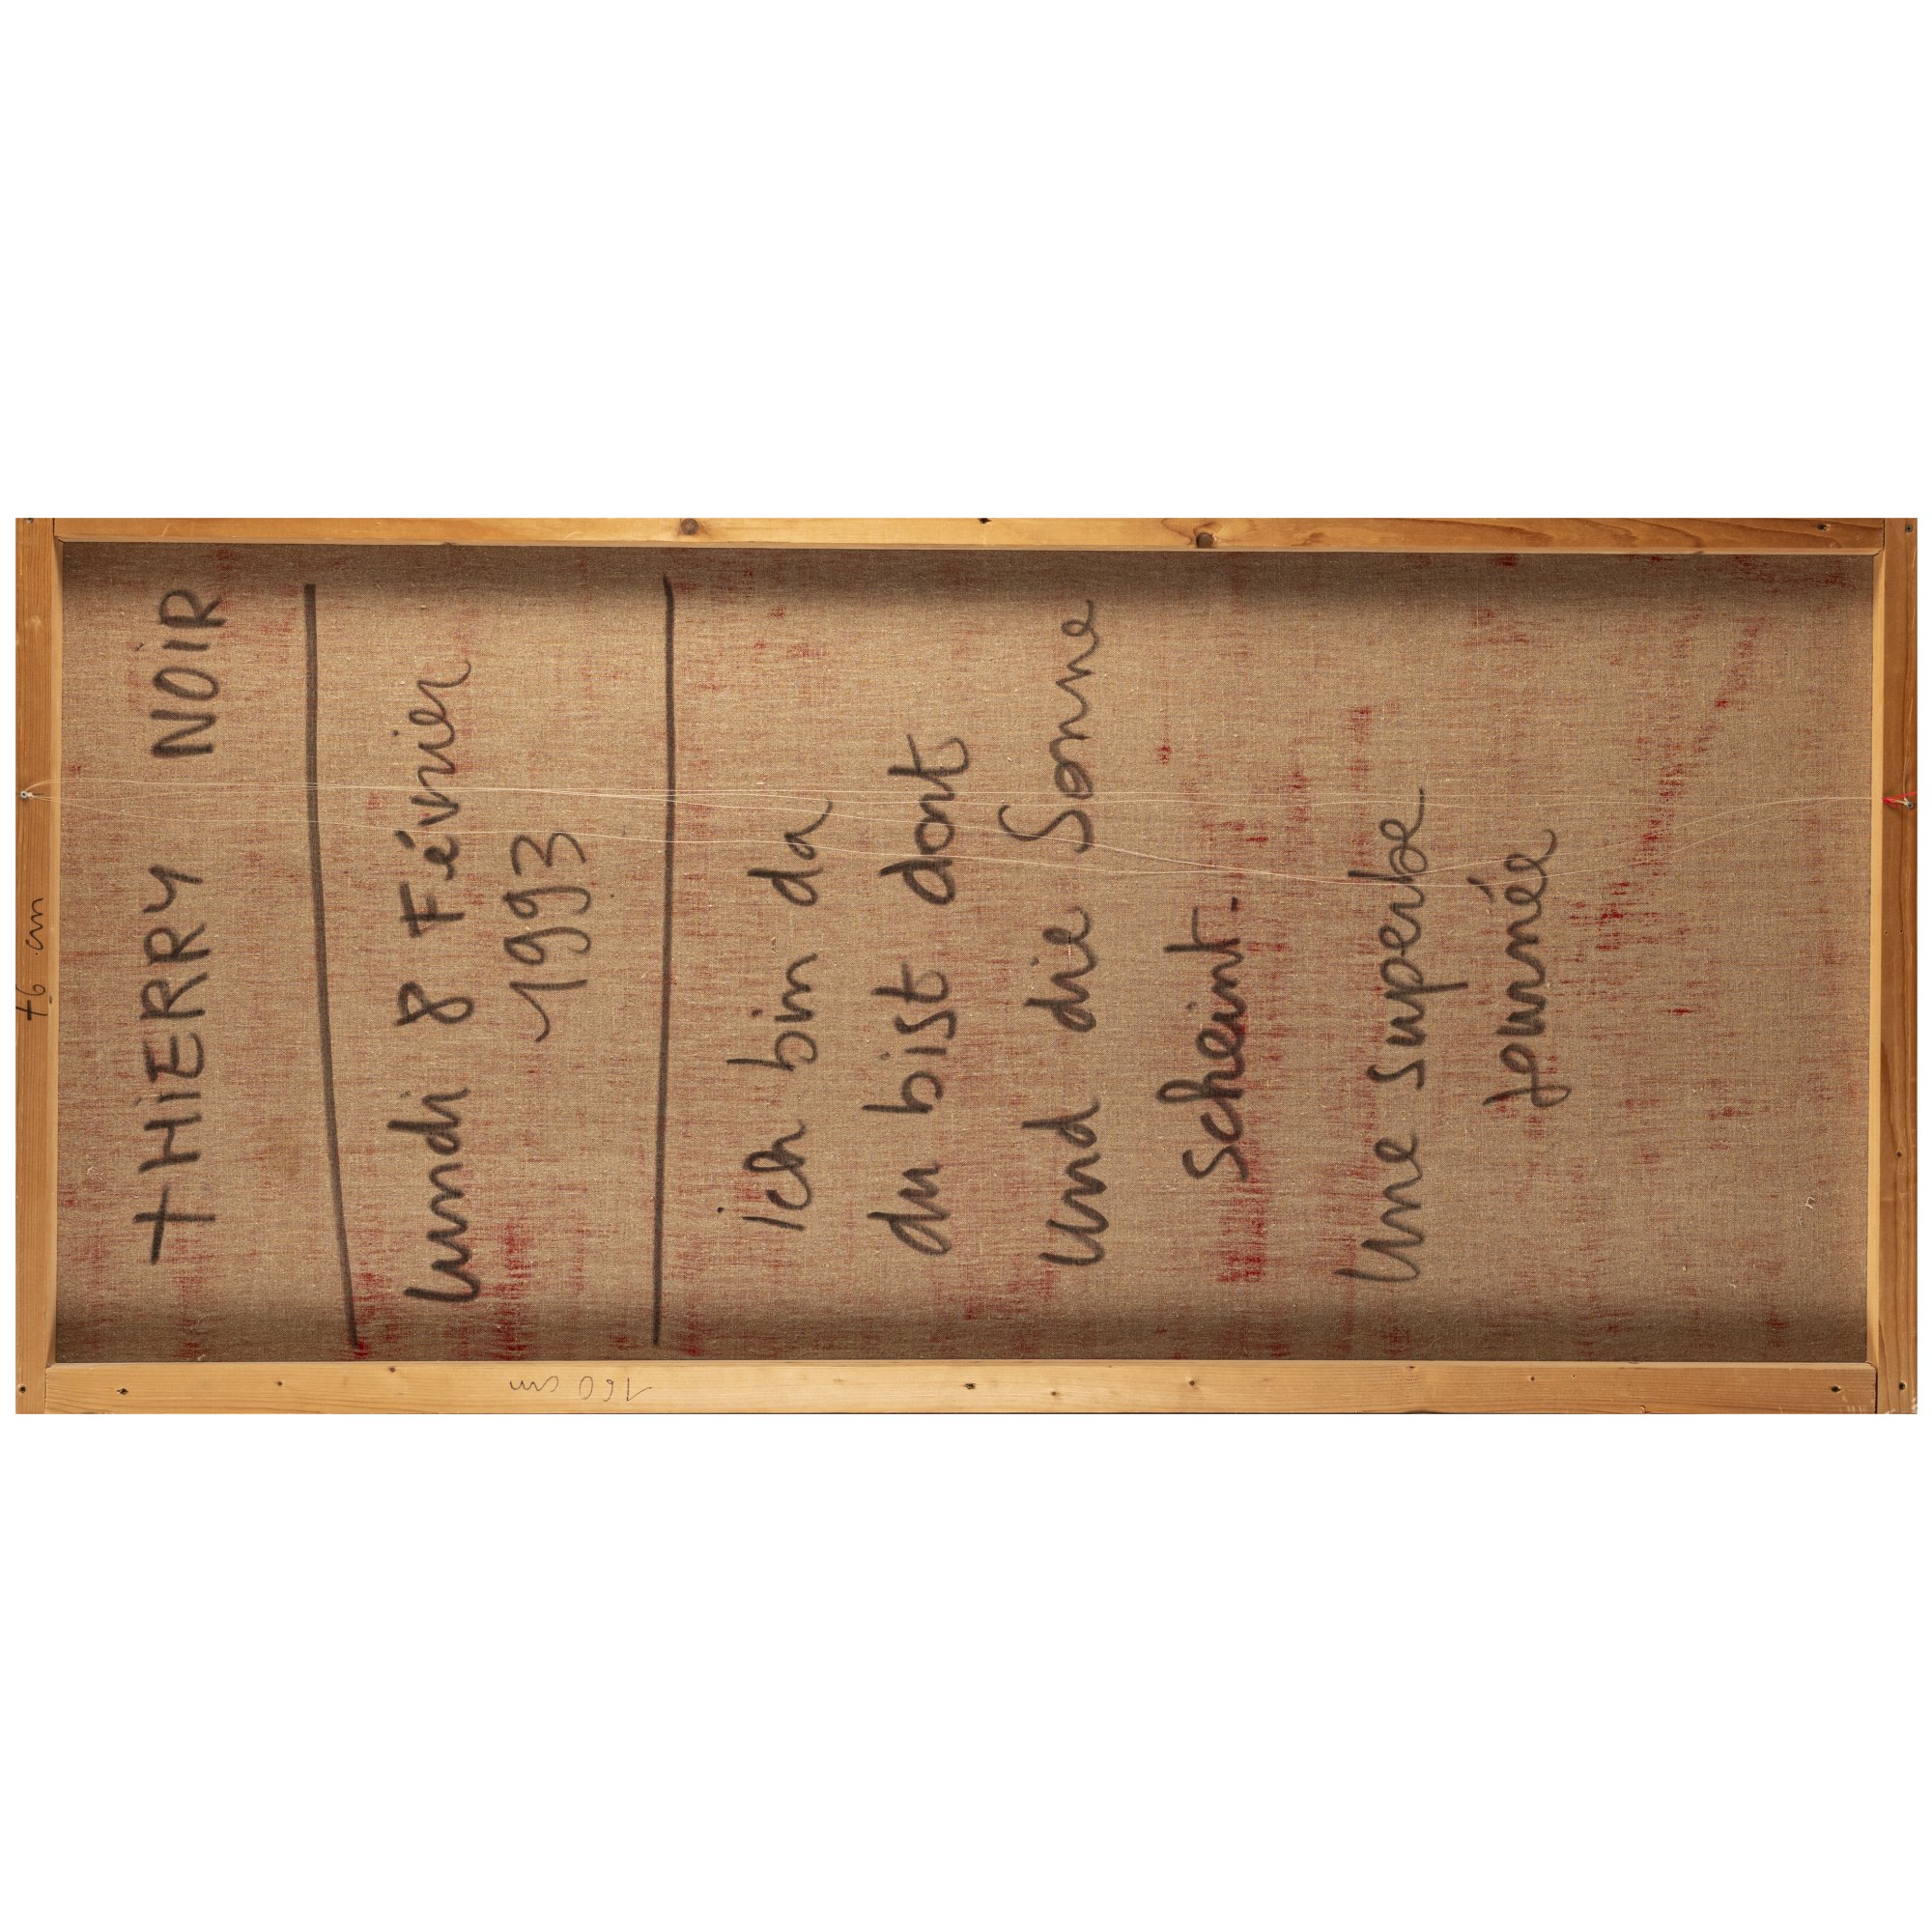 THiERRY NOiR
lundi 8 Février
1993
ich bin da
du bist dort
und die Sonne
scheint.
Une superbe
journée
76 cm
160 cm